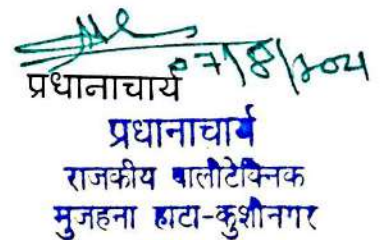 07/8/2021
प्रधानाचार्य
प्रधानाचार्य
राजकीय पालीटेक्निक
मुजहना हाटा-कुशीनगर